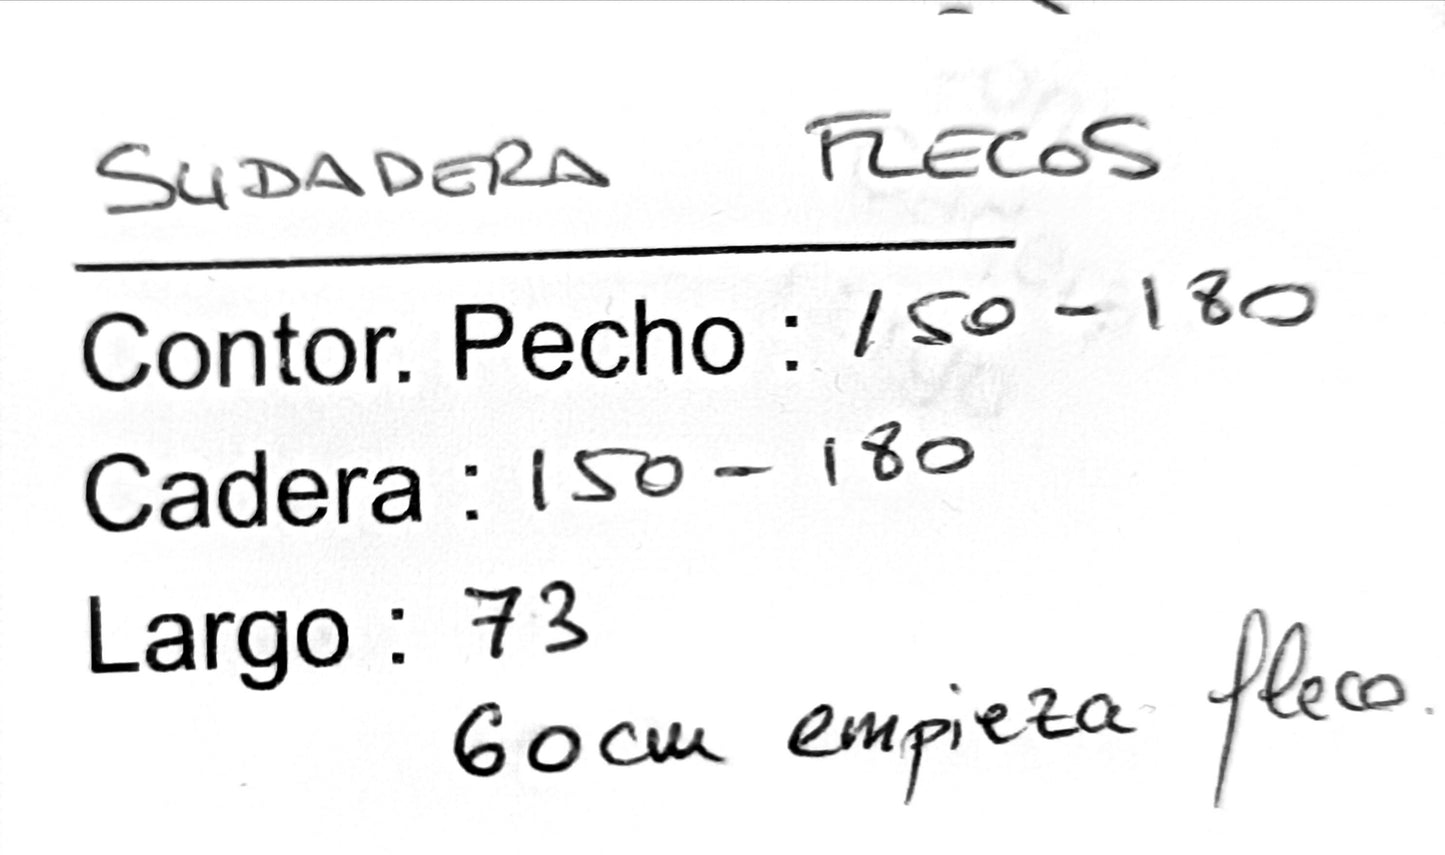 SUDADERA FLECOS
Contor. Pecho : 150-180
Cadera : 150 - 180
Largo : 73
60cm empieza fleco.